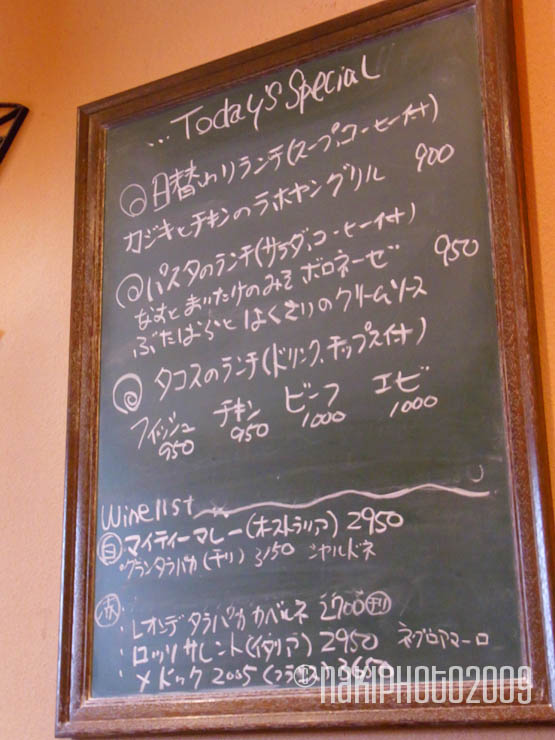 ...Today's Special
日替わりランチ(スープ.コーヒー付)
カジキとチキンのラホヤングリル 900
パスタのランチ(サラダ.コーヒー付)
なすとまいたけのみそボロネーゼ 950
ぶたばらとはくさいのクリームソース
タコスのランチ(ドリンク、チップス付)
フィッシュ チキン ビーフ エビ
950 950 1000 1000
Winelist
白 マイティーマレー(オーストラリア) 2950
・グランタラパカ(チリ) 3150 シャルドネ
赤
・レオンデタラパカカベルネ 2700 チリ
・ロッソサレント(イタリア) 2950 ネグロアマーロ
・メドック 2005 3650
makiphoto2009